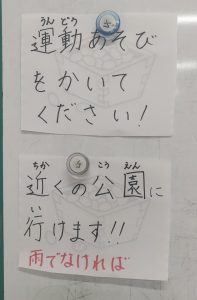 うん どう
運動あそび
をかいて
ください！
ちか こう えん
近くの公園に
い
行けます!!
雨でなければ